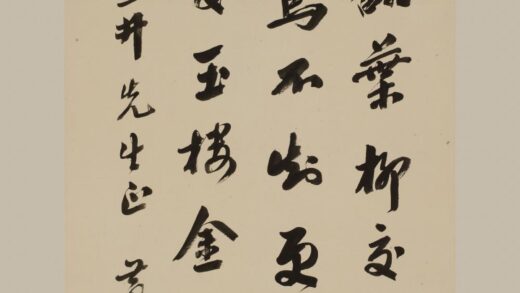 葉柳交
不到更
玉樓金
井先生正